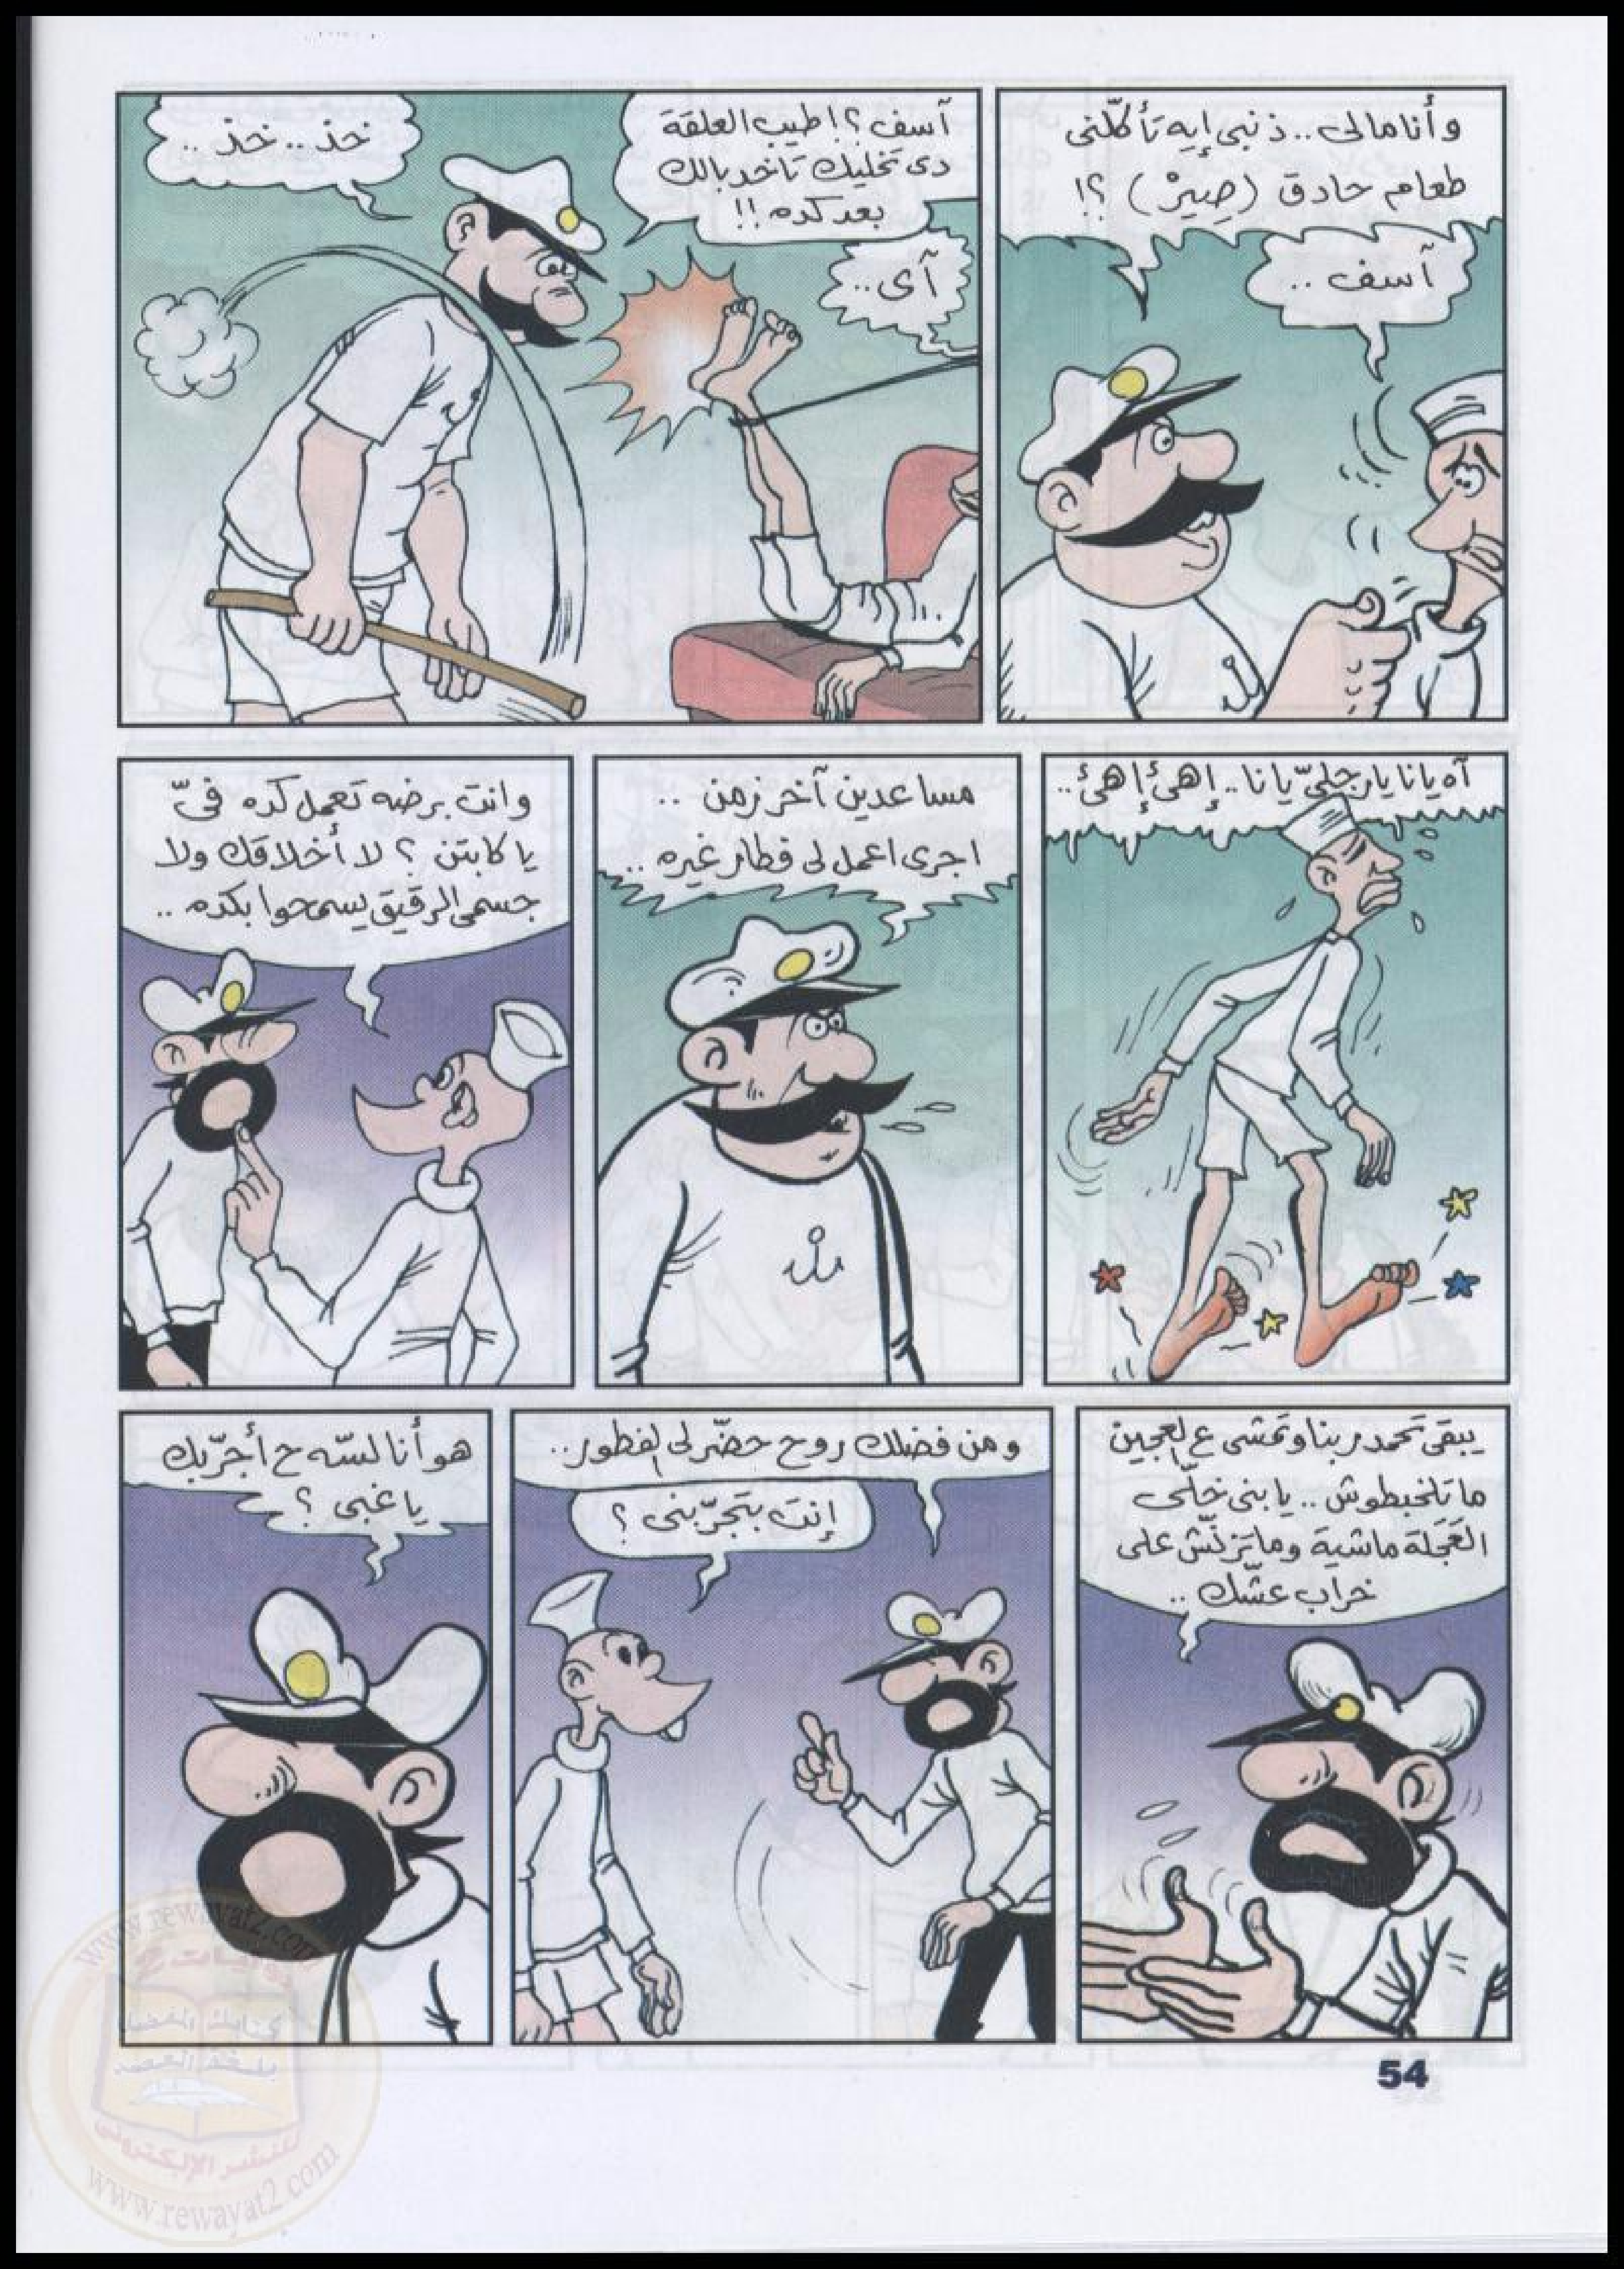 وأنا مالى.. ذنبى إيه تأكلّنى
طعام حادق (صِيرْ) ؟!
آسف ..
آسف ؟! طيب العلقة
دى تخليك تاخد بالك
بعد كده !!
آى ..
خذ .. خذ ..
آه يانا يا رجليّ يا نا.. إهئ إهئ ..
مساعدين آخر زمن ..
اجرى اعمل لى فطار غيره ..
وانت برضه تعمل كده فىّ
يا كابتن ؟ لا أخلاقك ولا
جسمى الرقيق يسمحوا بكده ..
يبقى تحمد ربنا وتمشى ع العجين
ما تلخبطوش .. يا بنى خلّى
العَجَلة ماشية وما تزنّش على
خراب عشّك ..
ومن فضلك روح حضّر لى الفطور ..
إنت بتجرّبنى ؟
هو أنا لسّه ح أجرّبك
يا غبى ؟
54
www.rewayat2.com
روايات 2
للنشر الإلكترونى
www.rewayat2.com